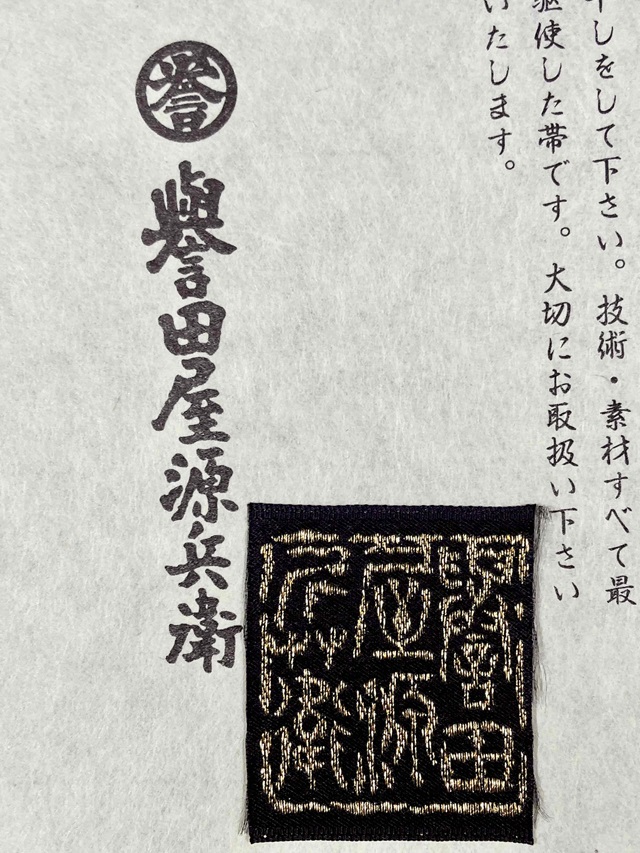 干しをして下さい。技術・素材すべて最
駆使した帯です。大切にお取扱い下さい
いたします。
誉
譽田屋源兵衛
譽田
屋源
兵衛